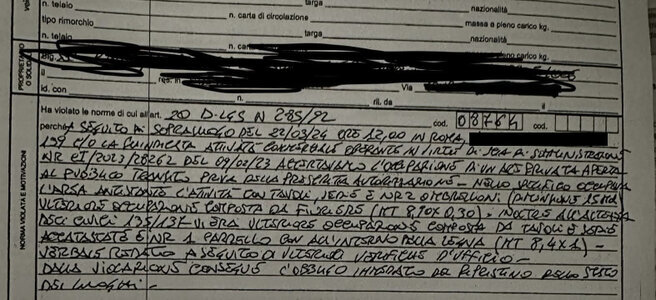 n. telaio targa nazionalità
tipo rimorchio n. carta di circolazione massa a pieno carico kg.
n. telaio targa nazionalità
n. pieno carico kg.
PROPRIETARIO O SOLIDALE
il res. in Via
id. con n. ril. da il
NORMA VIOLATA E MOTIVAZIONI
Ha violato le norme di cui all'art. 20 D.LGS N 285/92 cod. 08764
perché A SEGUITO DI SOPRALUOGO DEL 22/03/24 ORE 12,00 IN ROMA,
139 C/O LA ATTIVITÀ COMMERCIALE OPERANTE IN VIRTÙ DI SCIA DI SOMMINISTRAZIONE
NR EI/2023/28262 DEL 09/02/23 ACCERTAVANO L'OCCUPAZIONE DI UN AREA PRIVATA APERTA
AL PUBBLICO TRANSITO PRIVA DELLA PRESCRITTA AUTORIZZAZIONE - NELLO SPECIFICO OCCUPAVA
L'AREA ANTISTANTE L'ATTIVITÀ CON TAVOLI, SEDIE E NR 2 OMBRELLONI
ULTERIORE OCCUPAZIONE COMPOSTA DA FIORIERE (MT 8,70 X 0,30). INOLTRE ALL'ALTEZZA
DEI CIVICI 135/137 VI ERA ULTERIORE OCCUPAZIONE COMPOSTA DA TAVOLI E SEDIE
ACCATASTATE E NR 1 CON ALL'INTERNO DELLA LEGNA (MT 8,4 X 1) -
VERBALE REDATTO A SEGUITO DI ULTERIORI VERIFICHE D'UFFICIO -
DALLA VIOLAZIONE CONSEGUE L'OBBLIGO IMMEDIATO DEL RIPRISTINO DELLO STATO
DEI LUOGHI -